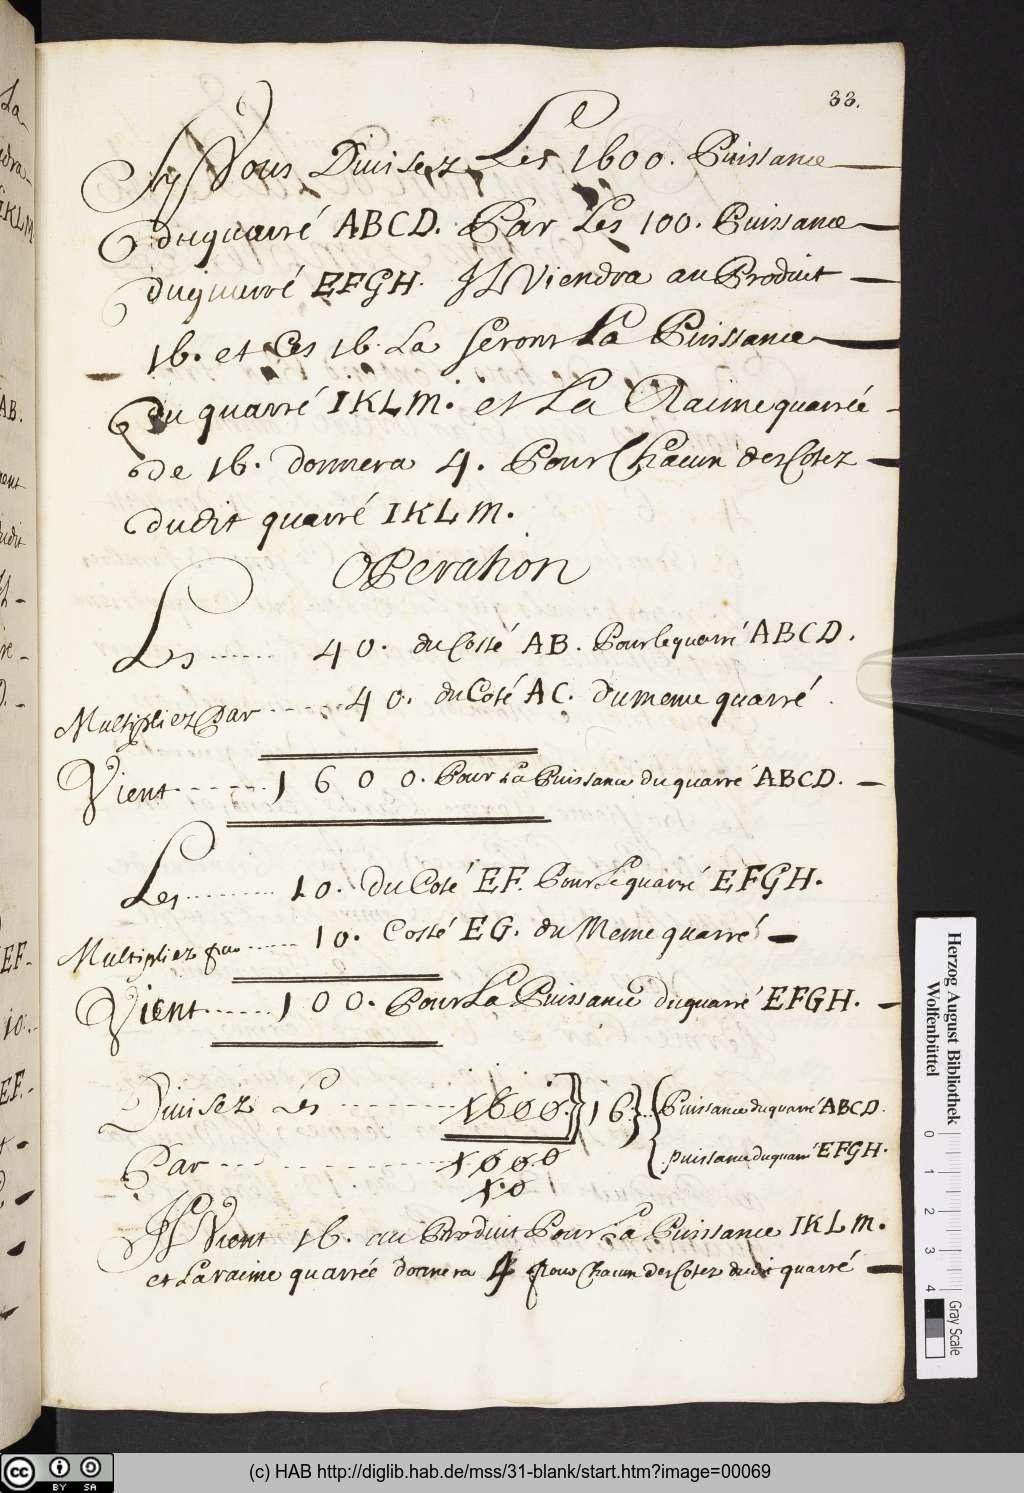 33.
Sy Vous Divisez Les 1600. Puissance
du quarré ABCD. Par Les 100. Puissance
du quarré EFGH. Jl Viendra au Produit
16. et Ces 16. La Seront La Puissance
du quarré IKLM. et La Racine quarrée
de 16. donnera 4. Pour Chacun des Cotez
dudit quarré IKLM.
Operation
Les ...... 40. du Costé AB. Pour le quarré ABCD.
Multipliez Par ...... 40. du Coté AC. du meme quarré
Vient ...... 1600. Pour La Puissance du quarré ABCD.
Les ...... 10. Du Coté EF. Pour Le quarré EFGH.
Multipliez par ...... 10. Costé EG. du Meme quarré
Vient ...... 100. Pour La Puissance du quarré EFGH.
Divisez Les ...... 1600. } 16 } ... { Puissance du quarré ABCD.
Par ...... 1000 puissance du quarré EFGH.
10
Jl Vient 16. au Produit Pour La Puissance IKLM.
et La racine quarrée donnera 4 pour Chacun des Cotez dudit quarré
La
IKLM
AB.
EF
10.
EF.
Herzog August Bibliothek
Wolfenbüttel
0 1 2 3 4
Gray Scale
cc BY SA
(c) HAB http://diglib.hab.de/mss/31-blank/start.htm?image=00069